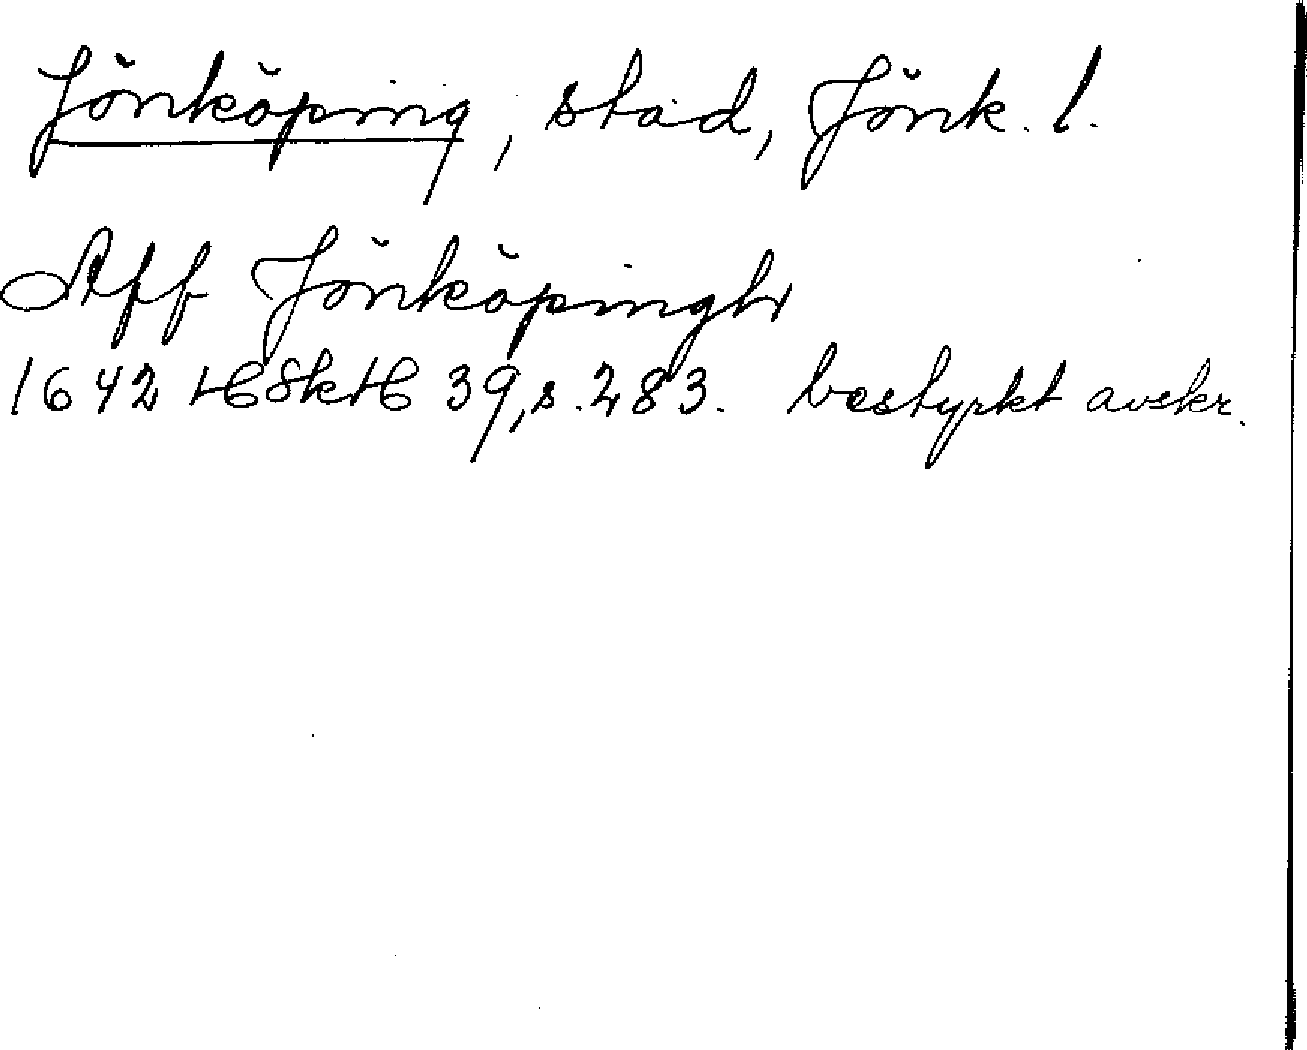 Jönköping, stad, Jönk. l.
Aff Jönköpingh
1642 HSkH 39, s. 283. bestyrkt avskr.